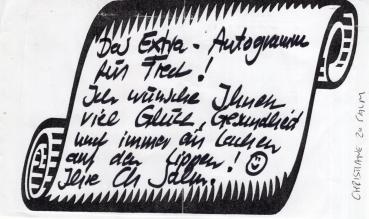 Das Extra-Autogramm
für Fred!
Ich wünsche Ihnen
viel Glück, Gesundheit
und immer ein Lachen
auf den Lippen! ☺
Ihre Ch Salm.
CHRISTIANE ZU SALM